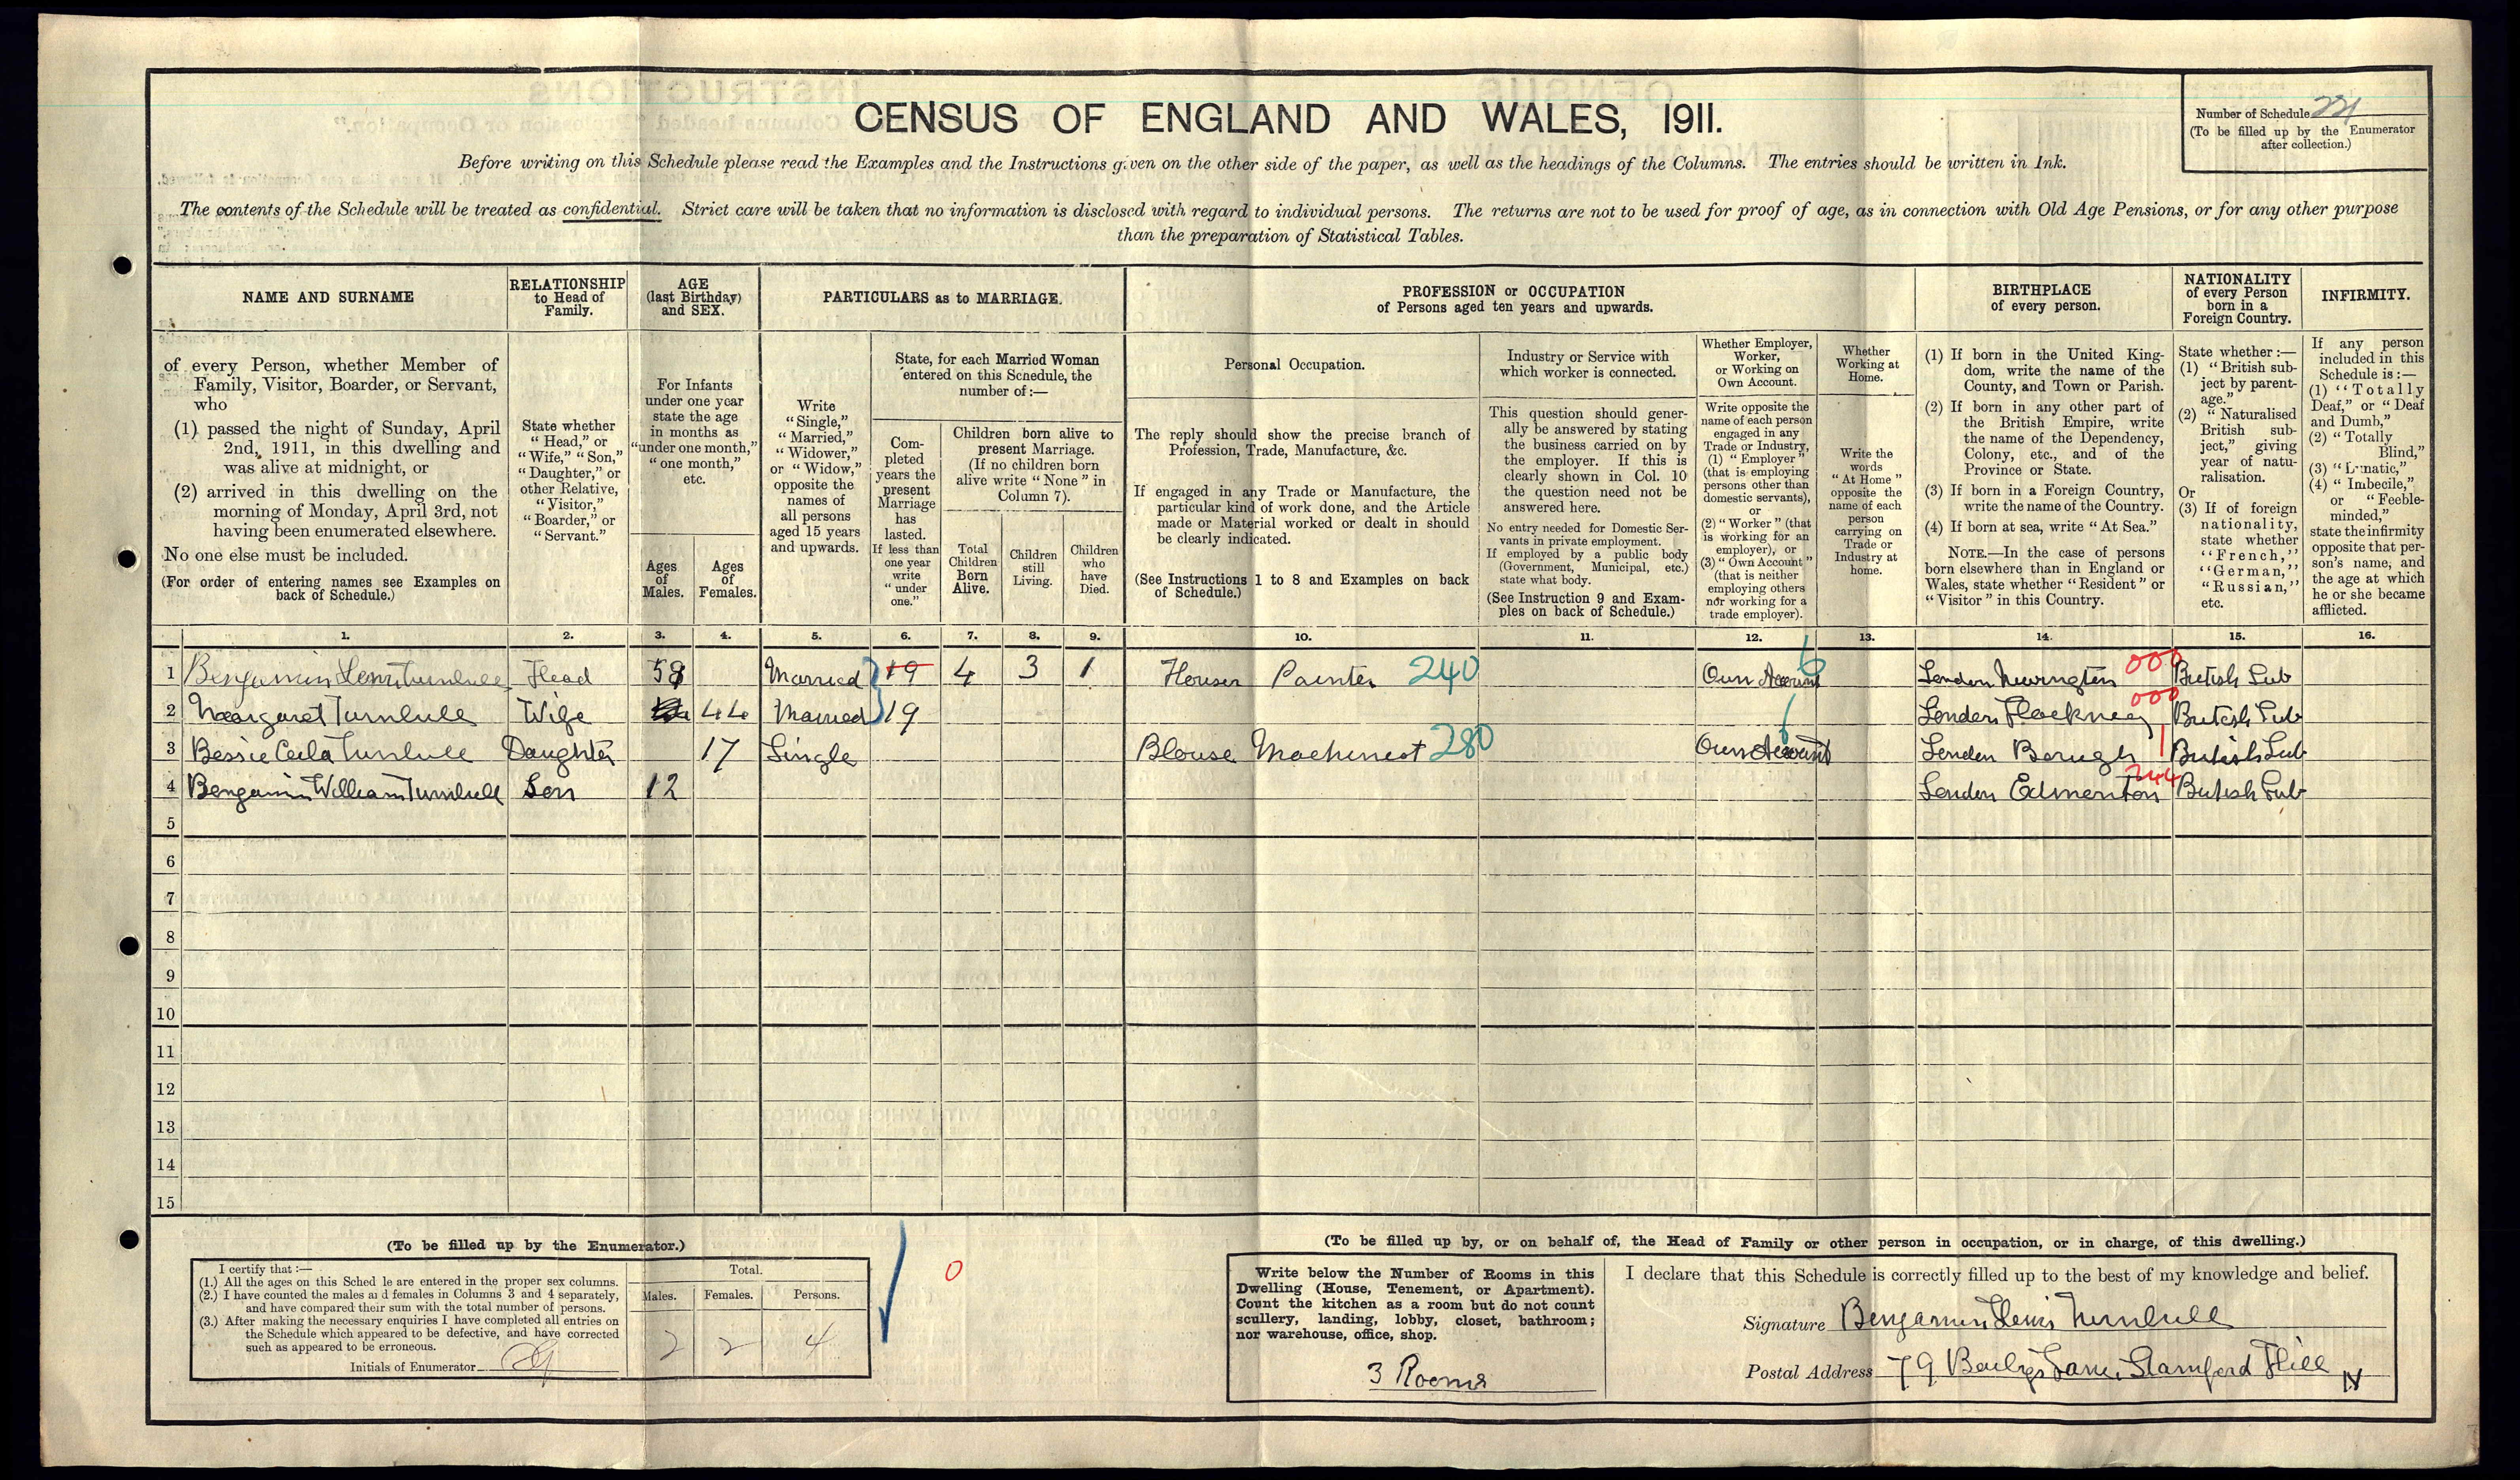 CENSUS OF ENGLAND AND WALES, 1911.
Number of Schedule 221
(To be filled up by the Enumerator
after collection.)
Before writing on this Schedule please read the Examples and the Instructions given on the other side of the paper, as well as the headings of the Columns. The entries should be written in Ink.
The contents of the Schedule will be treated as confidential. Strict care will be taken that no information is disclosed with regard to individual persons. The returns are not to be used for proof of age, as in connection with Old Age Pensions, or for any other purpose
than the preparation of Statistical Tables.
NAME AND SURNAME
of every Person, whether Member of
Family, Visitor, Boarder, or Servant,
who
(1) passed the night of Sunday, April
2nd, 1911, in this dwelling and
was alive at midnight, or
(2) arrived in this dwelling on the
morning of Monday, April 3rd, not
having been enumerated elsewhere.
No one else must be included.
(For order of entering names see Examples on
back of Schedule.)
RELATIONSHIP
to Head of
Family.
State whether
"Head," or
"Wife," "Son,"
"Daughter," or
other Relative,
"Visitor,"
"Boarder," or
"Servant."
AGE
(last Birthday)
and SEX.
For Infants
under one year
state the age
in months as
"under one month,"
"one month,"
etc.
Ages
of
Males.
Ages
of
Females.
PARTICULARS as to MARRIAGE.
Write
"Single,"
"Married,"
"Widower,"
or "Widow,"
opposite the
names of
all persons
aged 15 years
and upwards.
State, for each Married Woman
entered on this Schedule, the
number of:—
Com-
pleted
years the
present
Marriage
has
lasted.
If less than
one year
write
"under
one."
Children born alive to
present Marriage.
(If no children born
alive write "None" in
Column 7).
Total
Children
Born
Alive.
Children
still
Living.
Children
who
have
Died.
PROFESSION or OCCUPATION
of Persons aged ten years and upwards.
Personal Occupation.
The reply should show the precise branch of
Profession, Trade, Manufacture, &c.
If engaged in any Trade or Manufacture, the
particular kind of work done, and the Article
made or Material worked or dealt in should
be clearly indicated.
(See Instructions 1 to 8 and Examples on back
of Schedule.)
Industry or Service with
which worker is connected.
This question should gener-
ally be answered by stating
the business carried on by
the employer. If this is
clearly shown in Col. 10
the question need not be
answered here.
No entry needed for Domestic Ser-
vants in private employment.
If employed by a public body
(Government, Municipal, etc.)
state what body.
(See Instruction 9 and Exam-
ples on back of Schedule.)
Whether Employer,
Worker,
or Working on
Own Account.
Write opposite the
name of each person
engaged in any
Trade or Industry,
(1) "Employer"
(that is employing
persons other than
domestic servants),
or
(2) "Worker" (that
is working for an
employer), or
(3) "Own Account"
(that is neither
employing others
nor working for a
trade employer).
Whether
Working at
Home.
Write the
words
"At Home"
opposite the
name of each
person
carrying on
Trade or
Industry at
home.
BIRTHPLACE
of every person.
(1) If born in the United King-
dom, write the name of the
County, and Town or Parish.
(2) If born in any other part of
the British Empire, write
the name of the Dependency,
Colony, etc., and of the
Province or State.
(3) If born in a Foreign Country,
write the name of the Country.
(4) If born at sea, write "At Sea."
NOTE.—In the case of persons
born elsewhere than in England or
Wales, state whether "Resident" or
"Visitor" in this Country.
NATIONALITY
of every Person
born in a
Foreign Country.
State whether:—
(1) "British sub-
ject by parent-
age."
(2) "Naturalised
British sub-
ject," giving
year of natu-
ralisation.
Or
(3) If of foreign
nationality,
state whether
"French,"
"German,"
"Russian,"
etc.
INFIRMITY.
If any person
included in this
Schedule is:—
(1) "Totally
Deaf," or "Deaf
and Dumb,"
(2) "Totally
Blind,"
(3) "Lunatic,"
(4) "Imbecile,"
or "Feeble-
minded,"
state the infirmity
opposite that per-
son's name, and
the age at which
he or she became
afflicted.
1. 2. 3. 4. 5. 6. 7. 8. 9. 10. 11. 12. 13. 14. 15. 16.
1 Benjamin Henry Turnbull Head Married 19 4 3 1 House Painter 240 Own Account London Newington 000 British Sub
2 Margaret Turnbull Wife 44 Married 19 London Hackney 000 British Sub
3 Bessie Turnbull Daughter 17 Single Blouse Machinest 280 Own Account London Borough British Sub
4 Benjamin William Turnbull Son 12 London Edmonton 244 British Sub
5
6
7
8
9
10
11
12
13
14
15
(To be filled up by the Enumerator.)
I certify that:—
(1.) All the ages on this Sched le are entered in the proper sex columns.
(2.) I have counted the males and females in Columns 3 and 4 separately,
and have compared their sum with the total number of persons.
(3.) After making the necessary enquiries I have completed all entries on
the Schedule which appeared to be defective, and have corrected
such as appeared to be erroneous.
Initials of Enumerator
Total.
Males. Females. Persons.
2 2 4
0
(To be filled up by, or on behalf of, the Head of Family or other person in occupation, or in charge, of this dwelling.)
Write below the Number of Rooms in this
Dwelling (House, Tenement, or Apartment).
Count the kitchen as a room but do not count
scullery, landing, lobby, closet, bathroom;
nor warehouse, office, shop.
3 Rooms
I declare that this Schedule is correctly filled up to the best of my knowledge and belief.
Signature Benjamin Henry Turnbull
Postal Address 79 Baileys Lane, Stamford Hill N